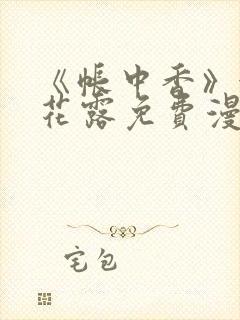 《帐中香》
花露免费漫
宅包